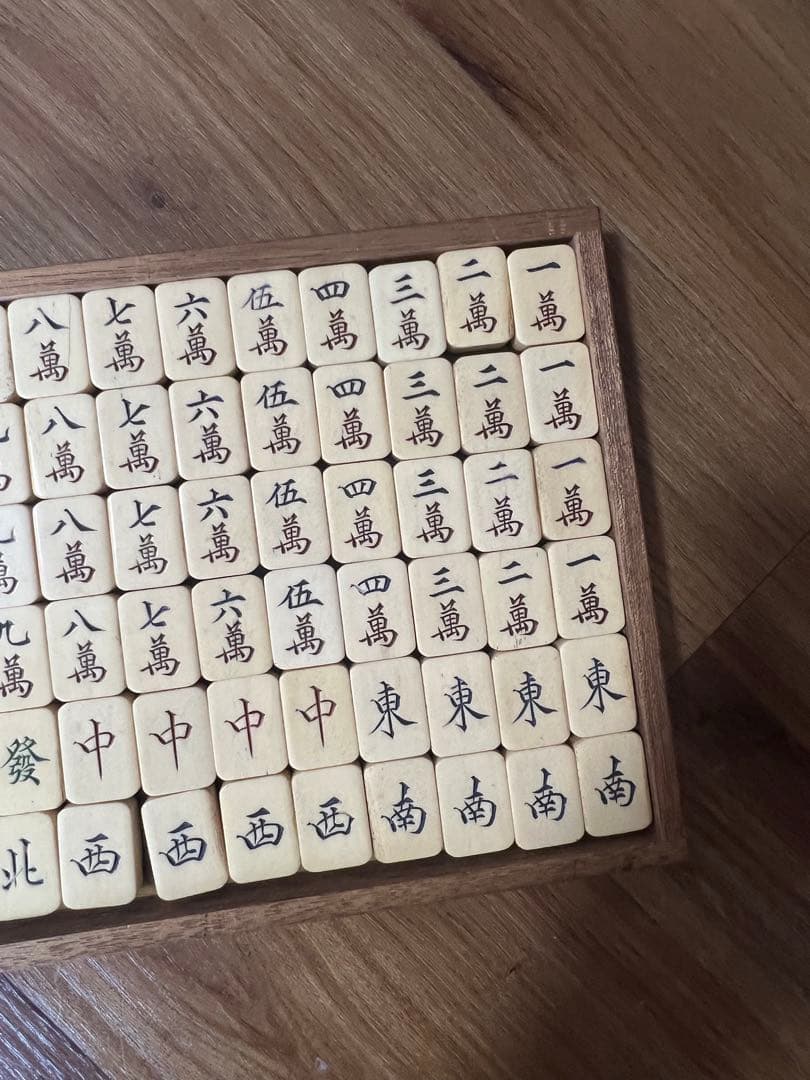 八萬 七萬 六萬 伍萬 四萬 三萬 二萬 一萬
八萬 七萬 六萬 伍萬 四萬 三萬 二萬 一萬
八萬 七萬 六萬 伍萬 四萬 三萬 二萬 一萬
九萬 八萬 七萬 六萬 伍萬 四萬 三萬 二萬 一萬
發 中 中 中 中 東 東 東 東
北 西 西 西 西 南 南 南 南